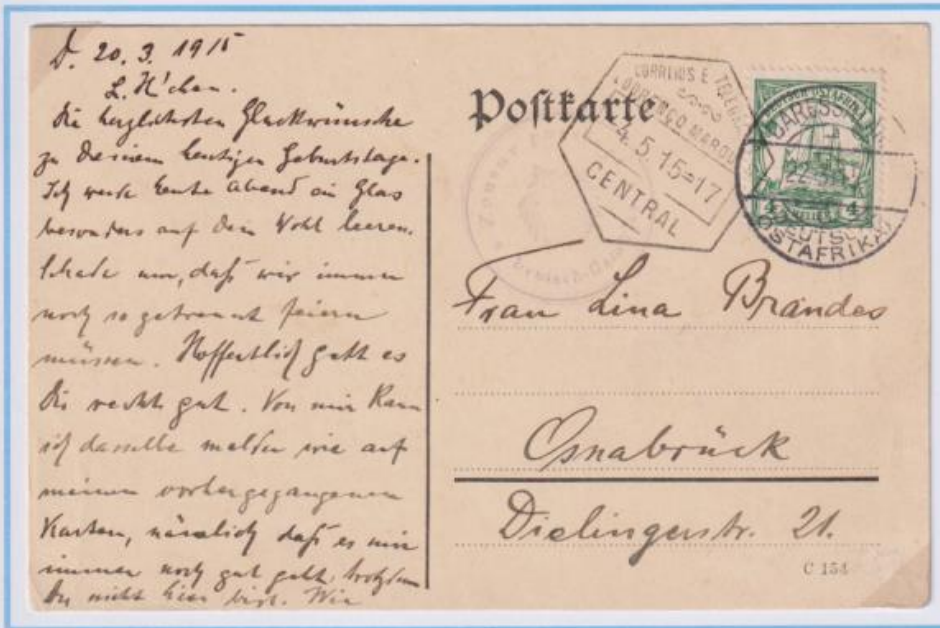 D. 20.3.1915
L. H'chen.
Die herzlichsten Glückwünsche
zu Deinem heutigen Geburtstage.
Ich werde heute Abend ein Glas
besonders auf Dein Wohl leeren.
Schade nur, daß wir immer
noch so getrennt feiern
müssen. Hoffentlich geht es
Dir recht gut. Von mir kann
ich dasselbe melden wie auf
meinen vorhergegangenen
Karten, nämlich daß es mir
immer noch gut geht, trotzdem
Du nicht hier bist. Wir
Postkarte
CORREIOS E
LOURENÇO MARQU
4.5.15=17
CENTRAL
DARESSAL
22
DEUTSCH
OSTAFRIKA
4
4
Frau Lina Brandes
Osnabrück
Dielingerstr. 21.
C 154